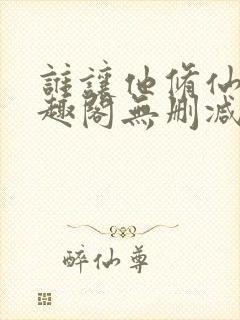 誰讓他脩仙
趣閣無删减
醉仙尊